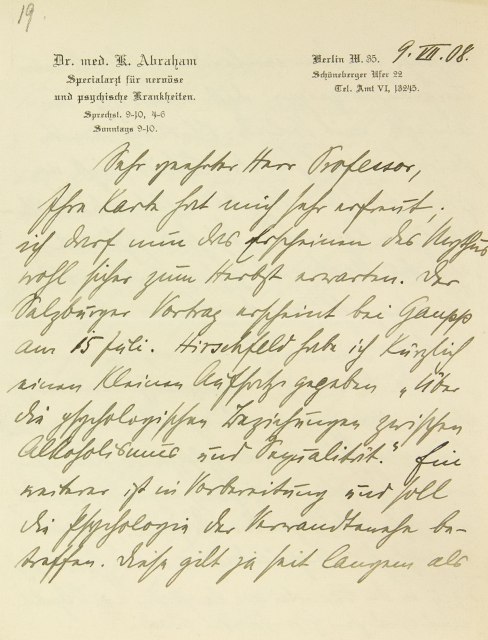 19.
Dr. med. K. Abraham
Specialarzt für nervöse
und psychische Krankheiten.
Sprechst. 9-10, 4-6
Sonntags 9-10.
Berlin W. 35. 9. VII. 08.
Schöneberger Ufer 22
Tel. Amt VI, 13245.
Sehr geehrter Herr Professor,
Ihre Karte hat mich sehr erfreut;
ich darf nun das Erscheinen des Mythus
wohl sicher zum Herbst erwarten. Der
Salzburger Vortrag erscheint bei Gaupp
am 15 Juli. Hirschfeld habe ich kürzlich
einen kleinen Aufsatz gegeben „Über
die psychologischen Beziehungen zwischen
Alkoholismus und Sexualität." Ein
weiterer ist in Vorbereitung und soll
die Psychologie der Verwandtenehe be-
treffen. Diese gilt ja seit langem als